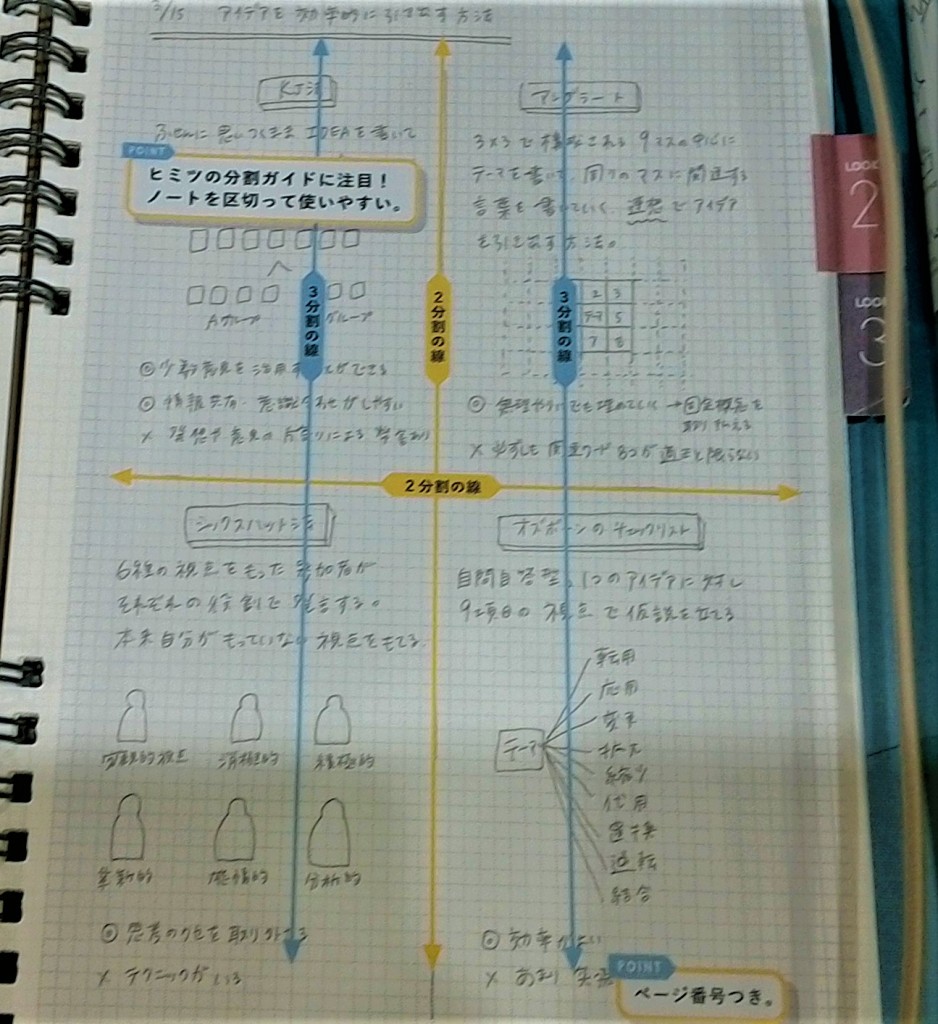 3/15 アイデアを効率的に引き出す方法
KJ法
ふせんに思いつくまま IDEAを書いて
POINT
ヒミツの分割ガイドに注目！
ノートを区切って使いやすい。
Aグループ
グループ
◎ 少数意見を活用 ができる
◎ 情報共有・意識 わせがしやすい
× 発想や意見の片 りによる
3分割の線
2分割の線
マンダラート
3×3で構成される 9マスの中心に
テーマを書いて、周りのマスに関連する
言葉を書いていく。連想でアイデア
を引き出す方法。
2 3
テーマ 5
7 8
3分割の線
◎ 無理やりでも埋めていく →
× 必ずしも関連ワード8つが適正と限らない
2分割の線
シックスハット法
6種の視点をもった参加者が
それぞれの役割で発言する。
本来自分がもっていない視点をもてる。
客観的視点 消極的 積極的
革新的 感情的 分析的
◎ 思考のクセを取り外せる
× テクニックがいる
オズボーンのチェックリスト
自問自答型、1つのアイデアに対し
9項目の視点で仮説を立てる
テーマ
転用
応用
変更
拡大
縮小
代用
置換
逆転
結合
◎ 効率がよい
× あまり
POINT
ページ番号つき。
LOOK
2
LOOK
3